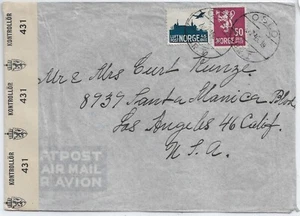 KONTROLLØR 431
KONTROLLØR 431
KONTROLLØR 431
KONTROLLØR 431
NORGE
NORGE
50
OSLO
Mr & Mrs Curt Kunze
8939 Santa Monica Blvd
Los Angeles 46 Calif.
U.S.A.
LUFTPOST
AIR MAIL
PAR AVION